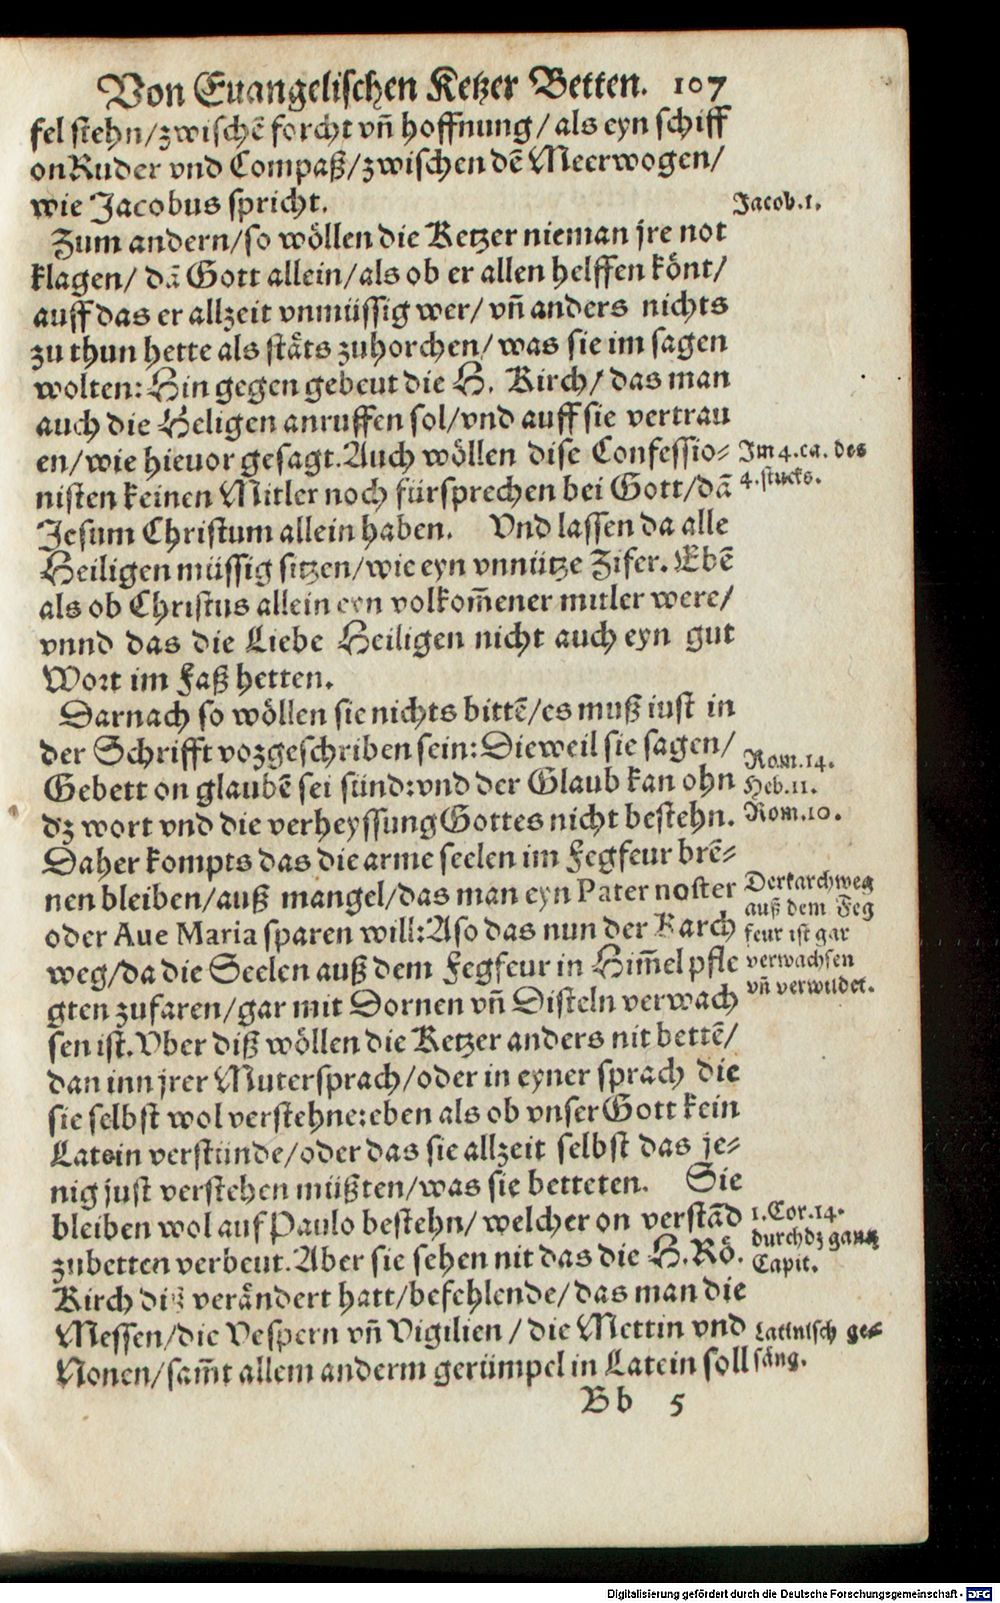 Von Euangelischen Ketzer Betten. 107
fel stehn/zwischē forcht vñ hoffnung/als eyn schiff
on Ruder vnd Compaß/zwischen dē Meerwogen/
wie Jacobus spricht.
Jacob.1.
Zum andern/so wöllen die Ketzer nieman jre not
klagen/ dā Gott allein/als ob er allen helffen könt/
auff das er allzeit vnmüssig wer/ vñ anders nichts
zu thun hette als stäts zuhorchen/ was sie im sagen
wolten: Hin gegen gebeut die H. Kirch/ das man
auch die Heligen anruffen sol/vnd auff sie vertrau
en/wie hieuor gesagt. Auch wöllen dise Confessio-
Im 4.ca. des
nisten keinen Mitler noch fürsprechen bei Gott/dā
4.stucks.
Jesum Christum allein haben. Vnd lassen da alle
Heiligen müssig sitzen/wie eyn vnnütze Zifer. Ebē
als ob Christus allein eyn volkom̄ener mitler were/
vnnd das die Liebe Heiligen nicht auch eyn gut
Wort im Faß hetten.
Darnach so wöllen sie nichts bittē/es muß iust in
der Schrifft vorgeschriben sein: Dieweil sie sagen/
Rom.14.
Gebett on glaubē sei sünd: vnd der Glaub kan ohn
Heb.11.
dz wort vnd die verheyssung Gottes nicht bestehn.
Rom.10.
Daher kompts das die arme seelen im Fegfeur brē-
nen bleiben/auß mangel/das man eyn Pater noster
Der karchweg
oder Aue Maria sparen will: Aso das nun der Karch
auß dem Feg
feur ist gar
weg/da die Seelen auß dem Fegfeur in Him̄el pfle
verwachsen
gten zufaren/gar mit Dornen vñ Disteln verwach
vñ verwildet.
sen ist. Vber diß wöllen die Ketzer anders nit bettē/
dan inn jrer Mutersprach/oder in eyner sprach die
sie selbst wol verstehne: eben als ob vnser Gott kein
Latein verstünde/oder das sie allzeit selbst das je-
nig just verstehen müßten/was sie betteten. Sie
bleiben wol auf Paulo bestehn/ welcher on verstād
1.Cor.14.
durch dz gantz
zubetten verbeut. Aber sie sehen nit das die H. Rö.
Capit.
Kirch diß verändert hatt/befehlende/das man die
Messen/die Vespern vñ Vigilien / die Mettin vnd
Latinisch ge-
Nonen/sam̄t allem anderm gerümpel in Latein soll
säng.
Bb 5
Digitalisierung gefördert durch die Deutsche Forschungsgemeinschaft - DFG